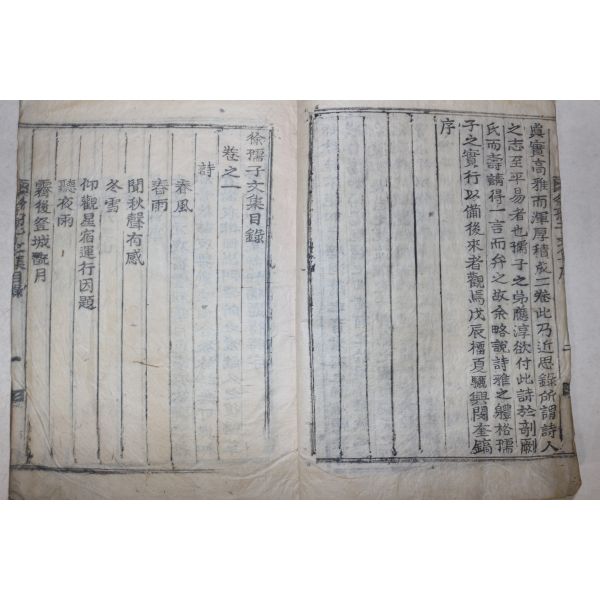 眞實高雅而渾厚積成二卷此乃近思錄所謂詩人
之志至平易者也孺子之弟應淳欲付此詩於剞劂
氏而壽請得一言而弁之故余略說詩雅之軆格孺
子之實行以備後來者觀焉戊辰榴夏驪興閔奎鎬
序
徐孺子文集目錄
卷之一
詩
春風
春雨
聞秋聲有感
冬雪
仰觀星宿運行因題
聽夜雨
霽後登城翫月
文集目錄 一